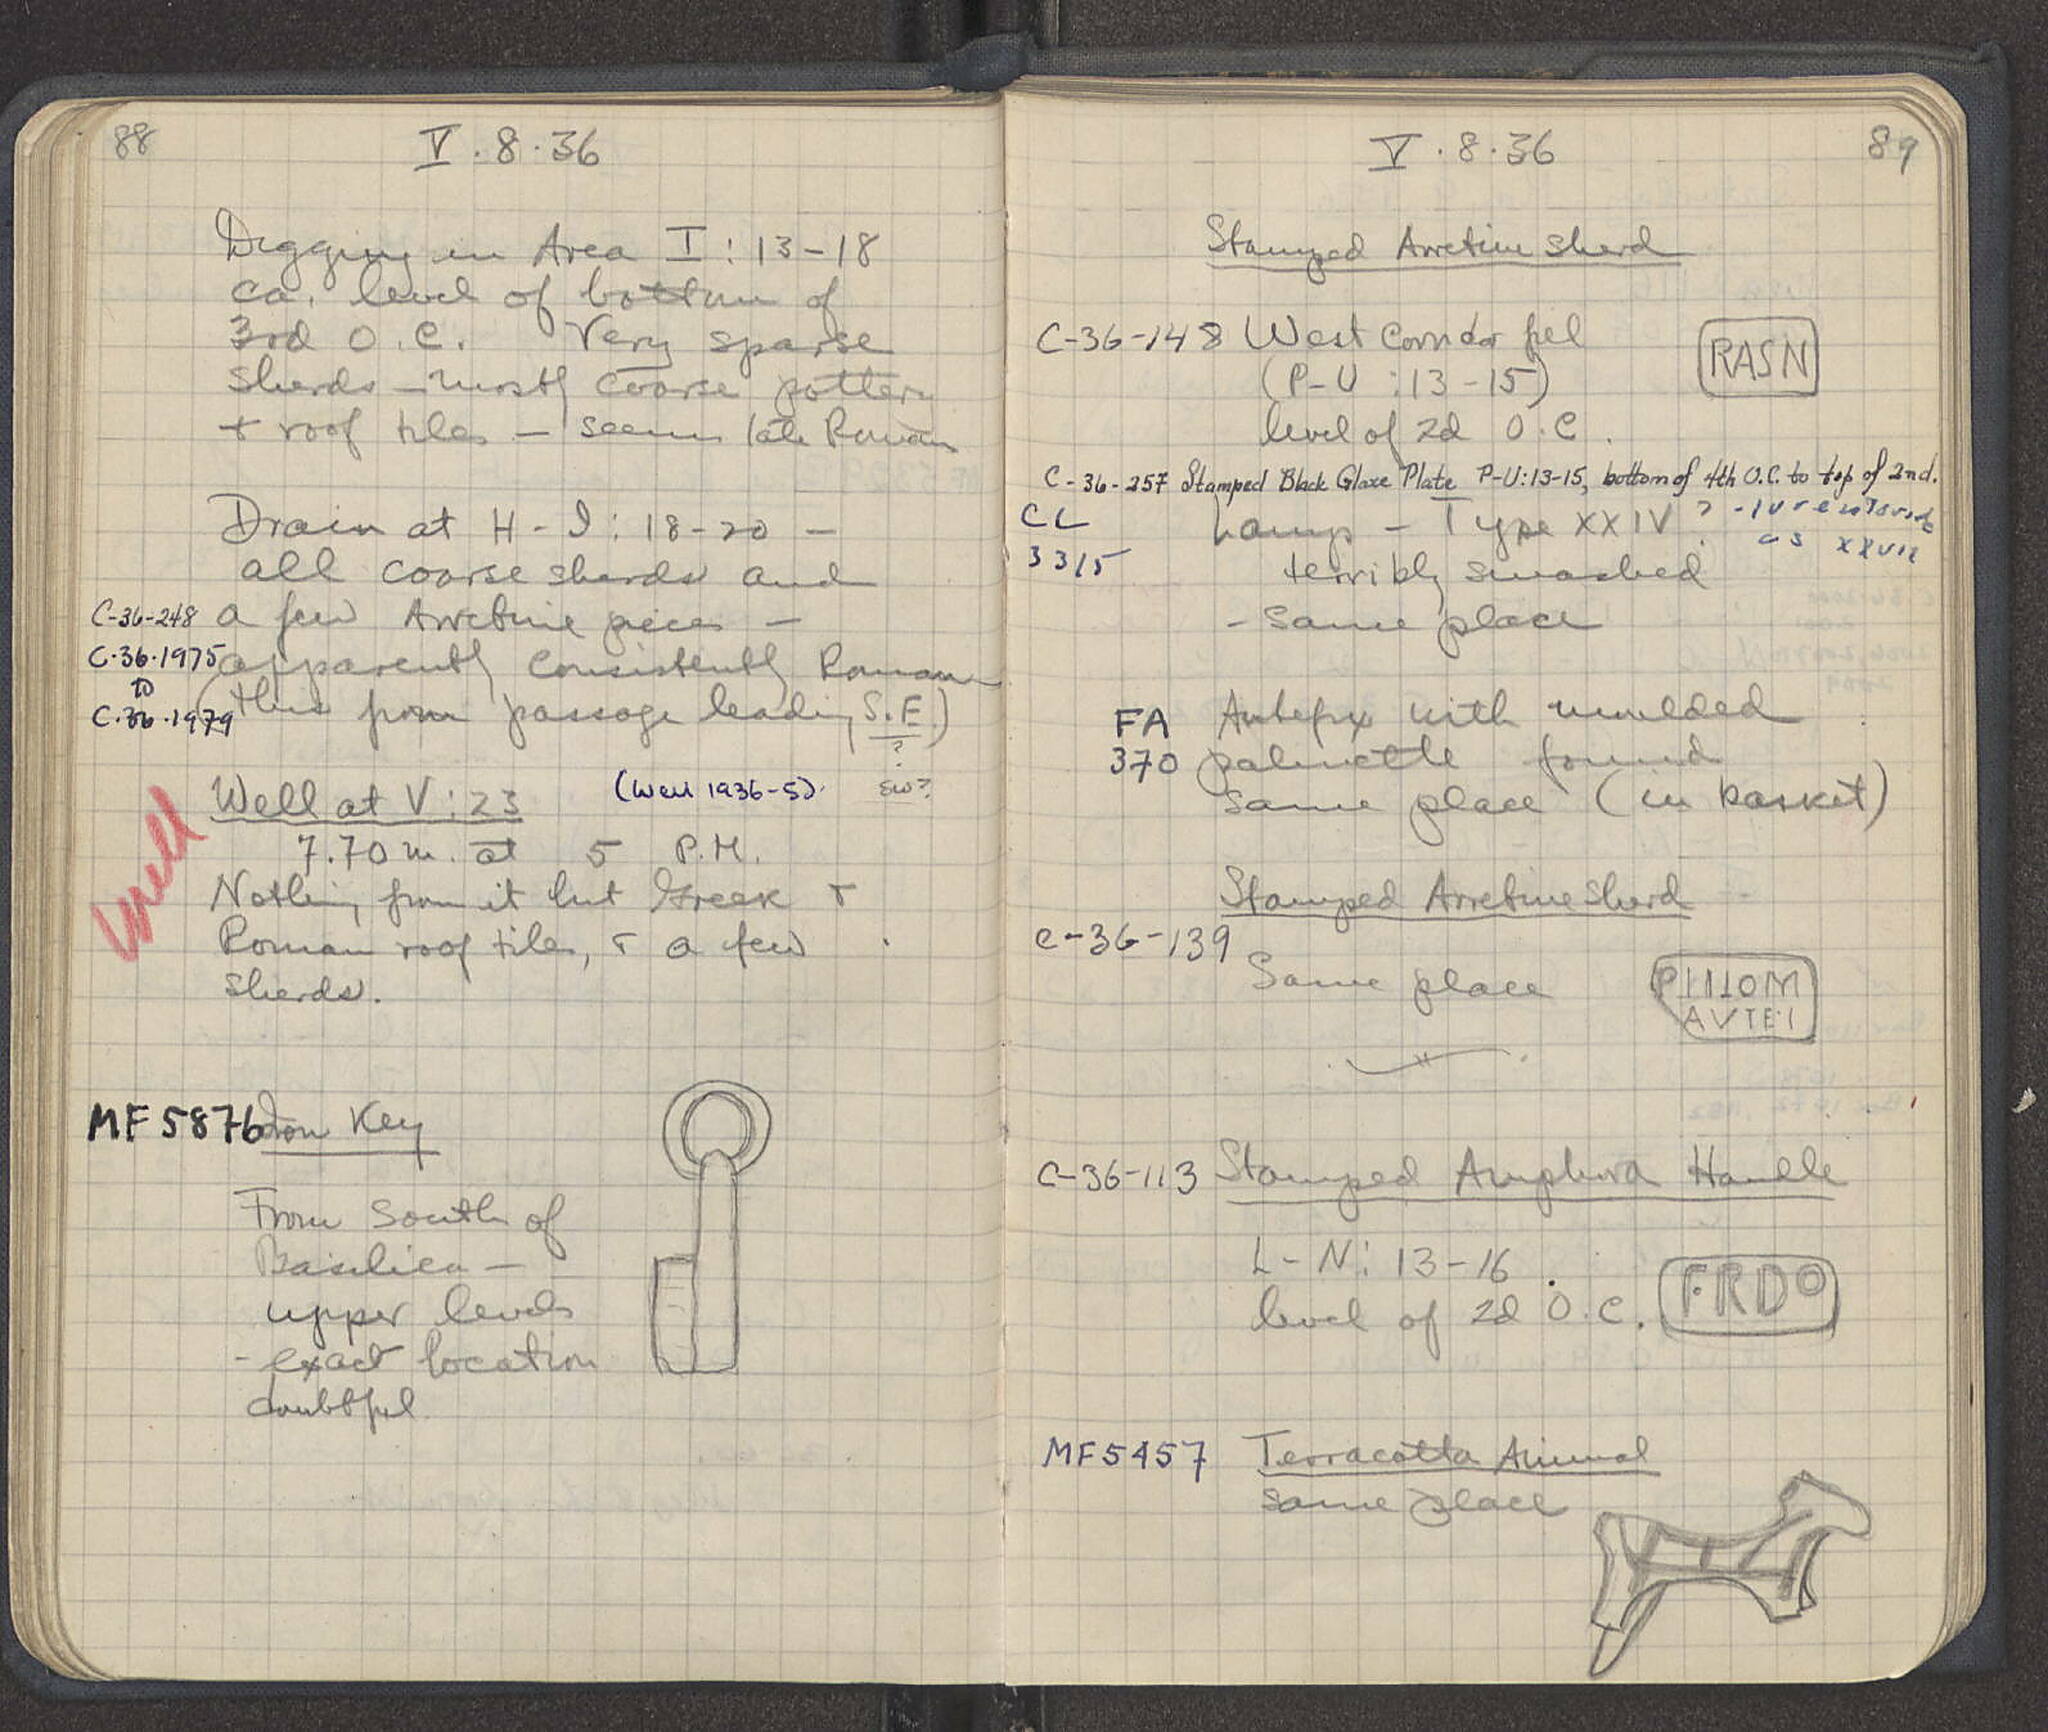 88
V . 8 . 36
Digging in Area I : 13-18
ca. level of bottom of
3rd O.C. Very sparse
sherds - mostly coarse pottery
+ roof tiles - seems late Roman
Drain at H - I : 18-20 -
all coarse sherds and
C-36-248 a few Arretine pieces -
C.36.1975 apparently consistently Roman
to
C.36.1979 (this from passage leading S.E.)
?
SW?
Well at V : 23 (Well 1936-5)
well
7.70 m. at 5 P.M.
Nothing from it but Greek +
Roman roof tiles, + a few
sherds.
MF 5876 Iron Key
From South of
Basilica -
upper levels
- exact location
doubtful
V . 8 . 36
89
Stamped Arretine Sherd
C-36-148 West Corridor fill RASN
(P-U : 13-15)
level of 2d O.C.
C-36-257 Stamped Black Glaze Plate P-U:13-15, bottom of 4th O.C. to top of 2nd.
CL Lamp - Type XXIV ? - inventoried
3315 as XXVII
terribly smashed
- same place
FA Antefix with moulded
370 palmette found
same place (in basket)
Stamped Arretine Sherd
C-36-139
Same place
AVTEI
C-36-113 Stamped Amphora Handle
L-N : 13-16
level of 2d O.C. FRDO
MF5457 Terracotta Animal
same place